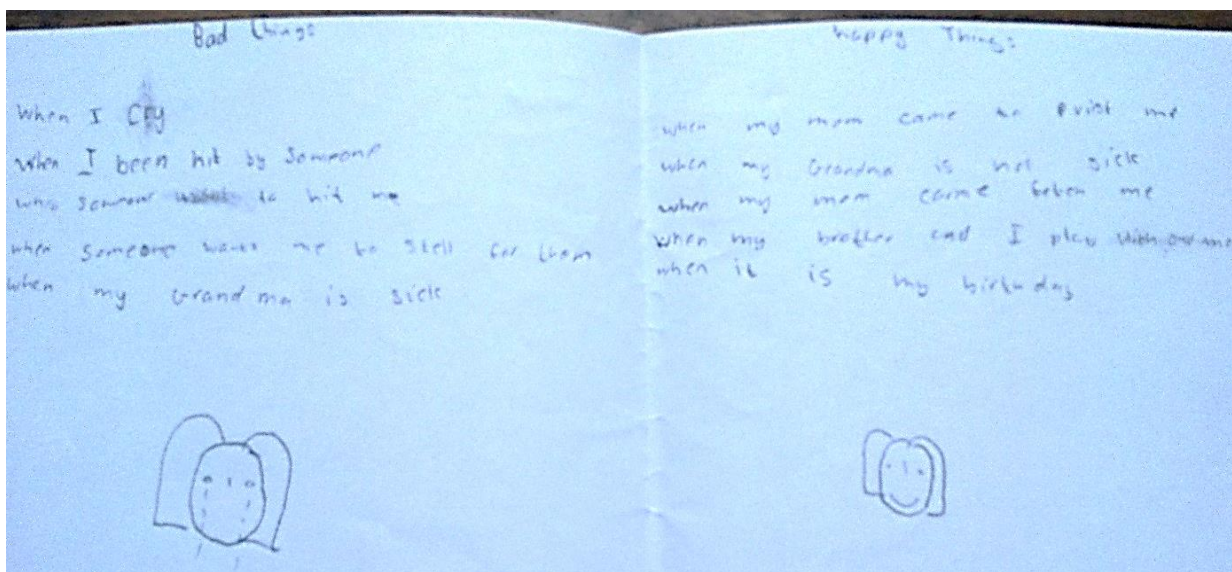 Bad things
When I Cry
when I been hit by Someone
someone to hit me
when someone wants me to stell for them
when my Grandma is sick
Happy Things
when my mom came to me
when my Grandma is not sick
when my mom came me
when my brother and I play with
when it is my birthday